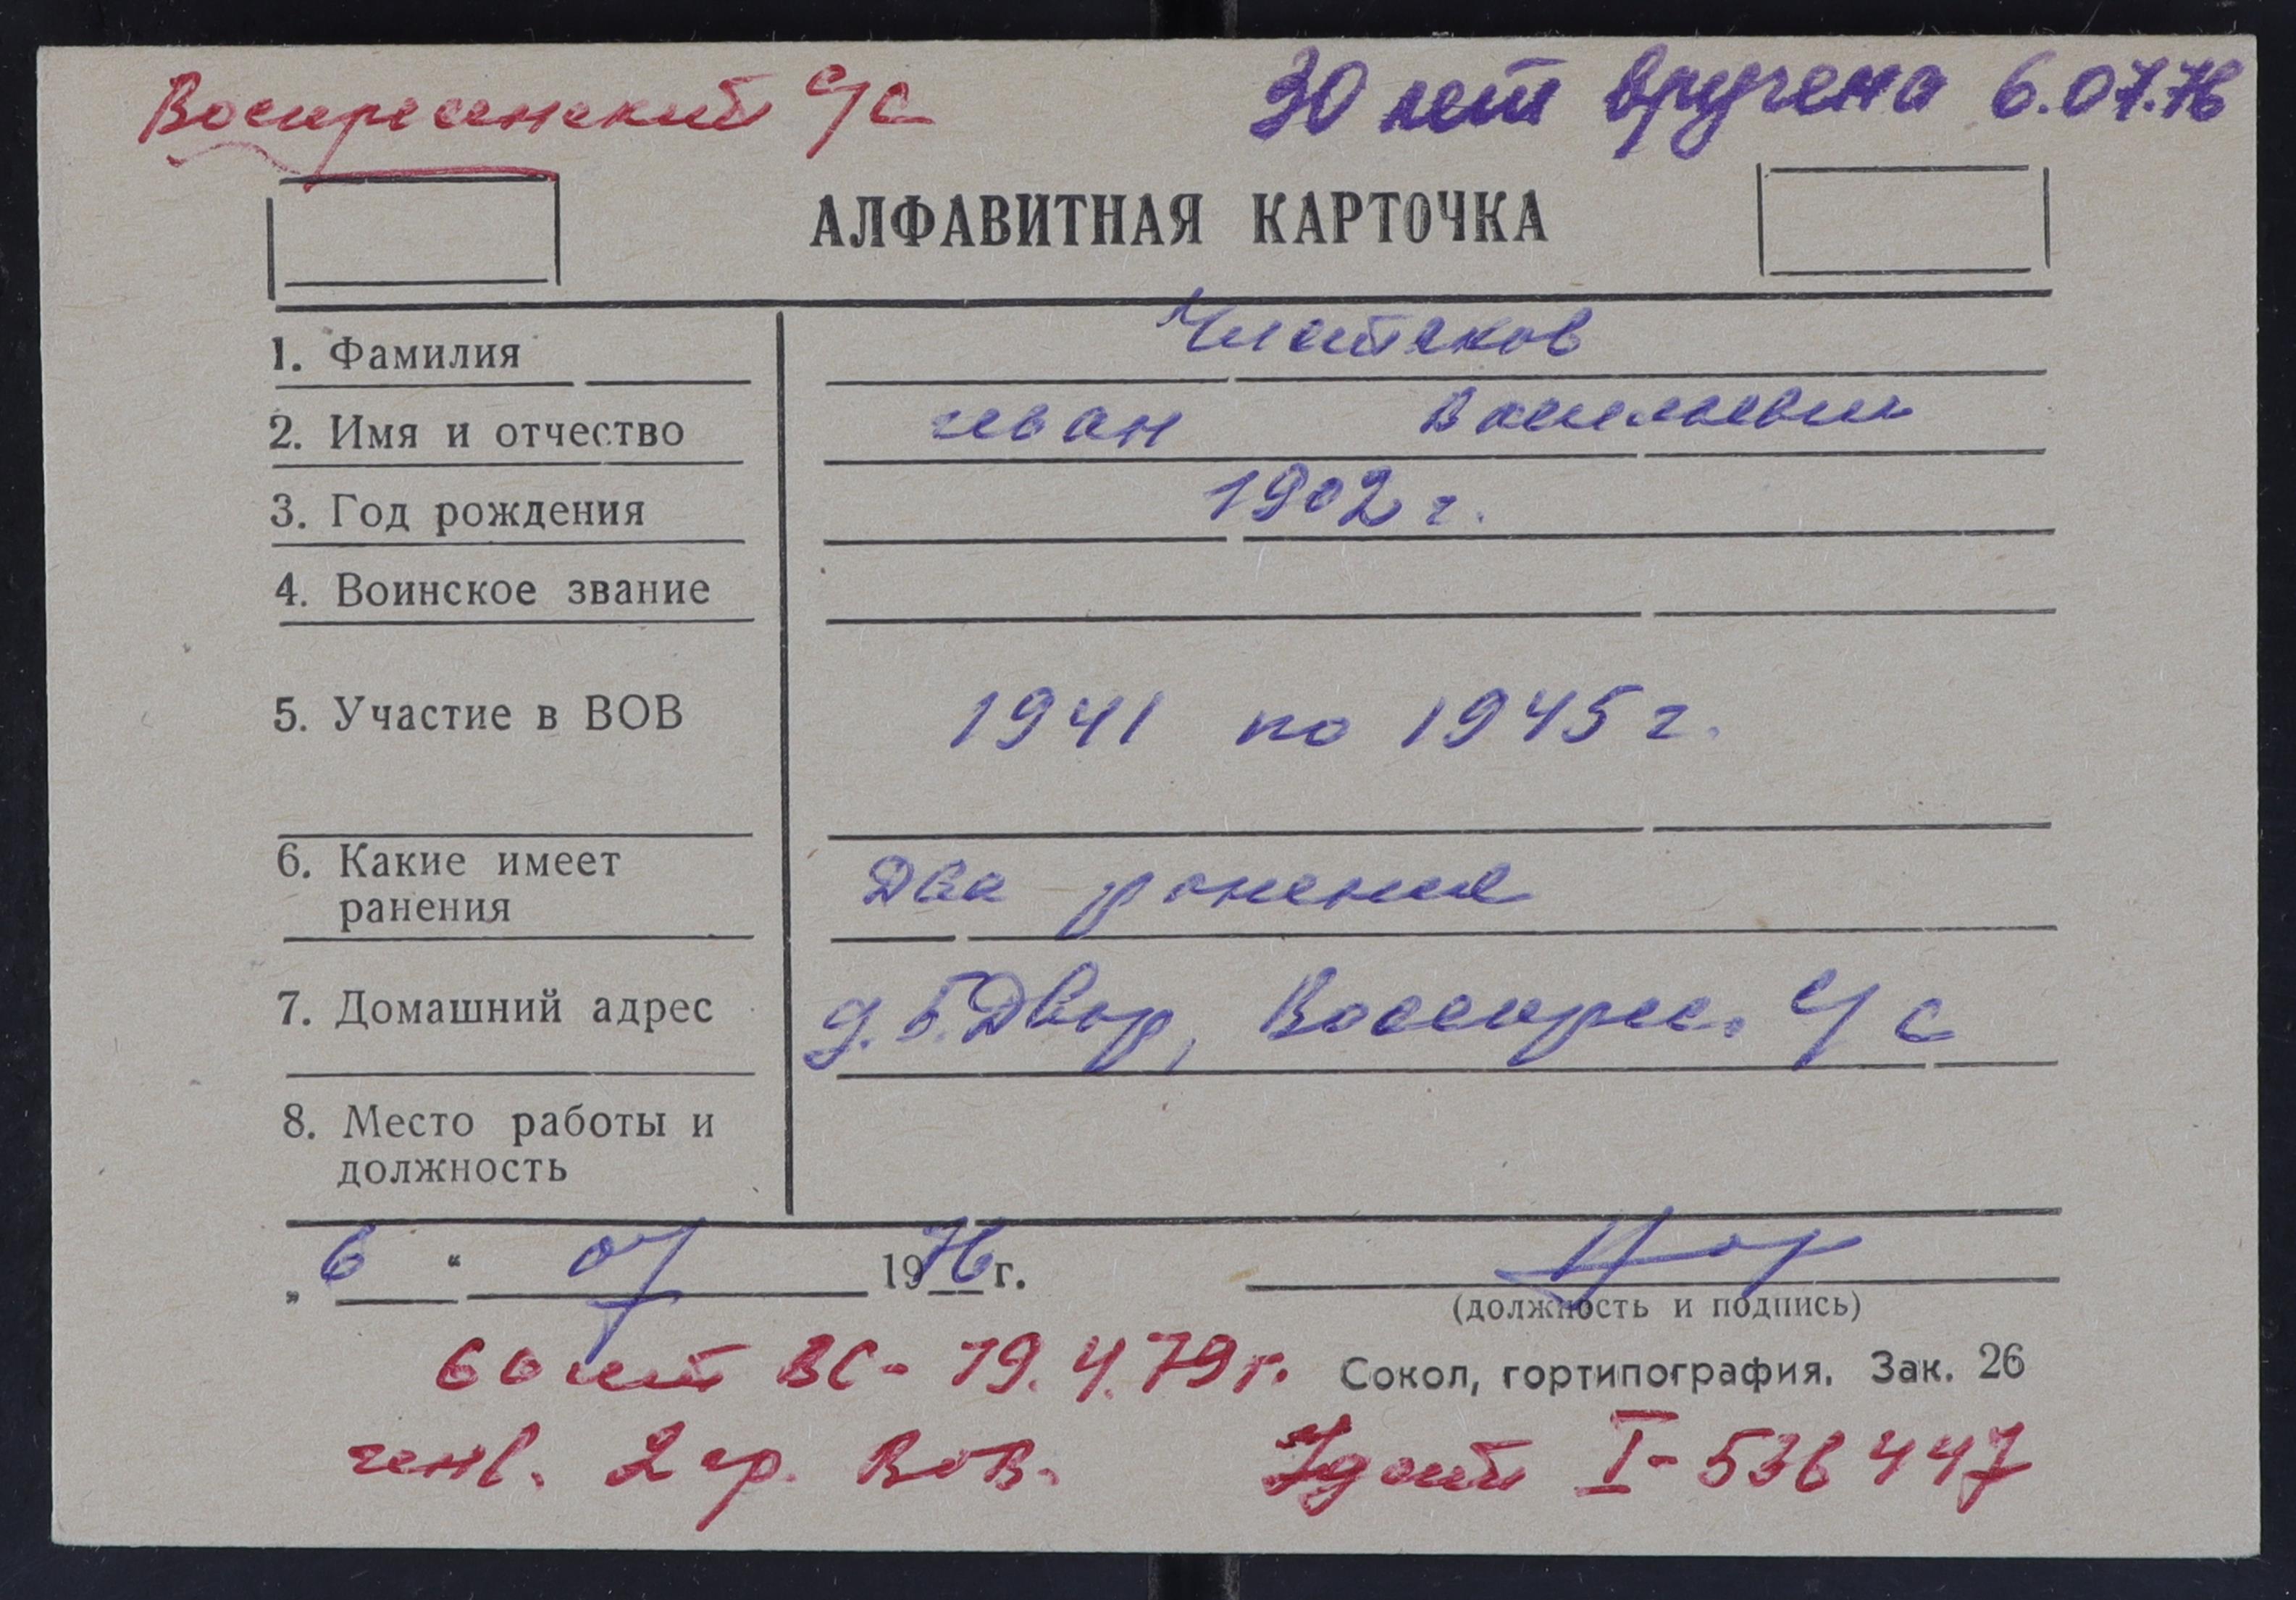 Воскресенский с/с
30 лет вручена 6.07.76
АЛФАВИТНАЯ КАРТОЧКА
1. Фамилия Чистяков
2. Имя и отчество Иван Васильевич
3. Год рождения 1902 г.
4. Воинское звание
5. Участие в ВОВ 1941 по 1945 г.
6. Какие имеет ранения Два ранения
7. Домашний адрес д. Б. Двор, Воскрес. с/с
8. Место работы и должность
„6“ 07 1976 г.
(должность и подпись)
60 лет ВС - 19.4.79 г.
Сокол, гортипография. Зак. 26
инв. 2 гр. ВОВ. Удост I-536447